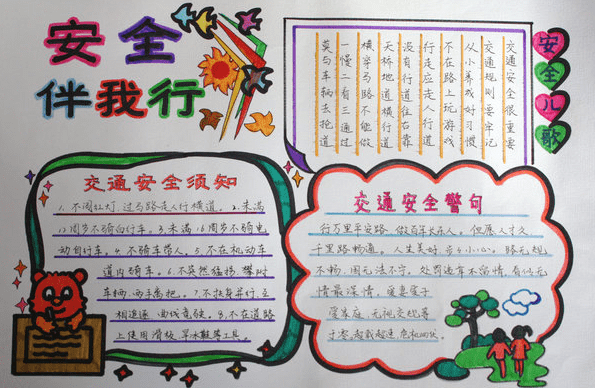 安全
伴我行
安全儿歌
交通安全很重要
交通规则要牢记
从小养成好习惯
不在路上玩游戏
行走应走人行道
没有行道往右靠
天桥地道横行道
横穿马路不能做
一慢二看三通过
莫与车辆去抢道
交通安全须知
1、不闯红灯 过马路走人行横道。2、未满
12周岁不骑自行车。3、未满16周岁不骑电
动自行车。4、不骑车带人。5、不在机动车
道内骑车。6、不突然猛拐 攀附
车辆、双手离把。7、不扶身并行、互
相追逐、曲线竞驶。8、不在道路
上使用滑板 旱冰鞋等工具
交通安全警句
行万里平安路 做百年长在人。但愿人长久
千里路畅通。人生美好 步步小心。路无规
不畅 国无法不宁。处罚违章不留情，看似无
情最深情。爱妻爱子
爱家庭 无视交规等
于零。超载超速 危机四伏。